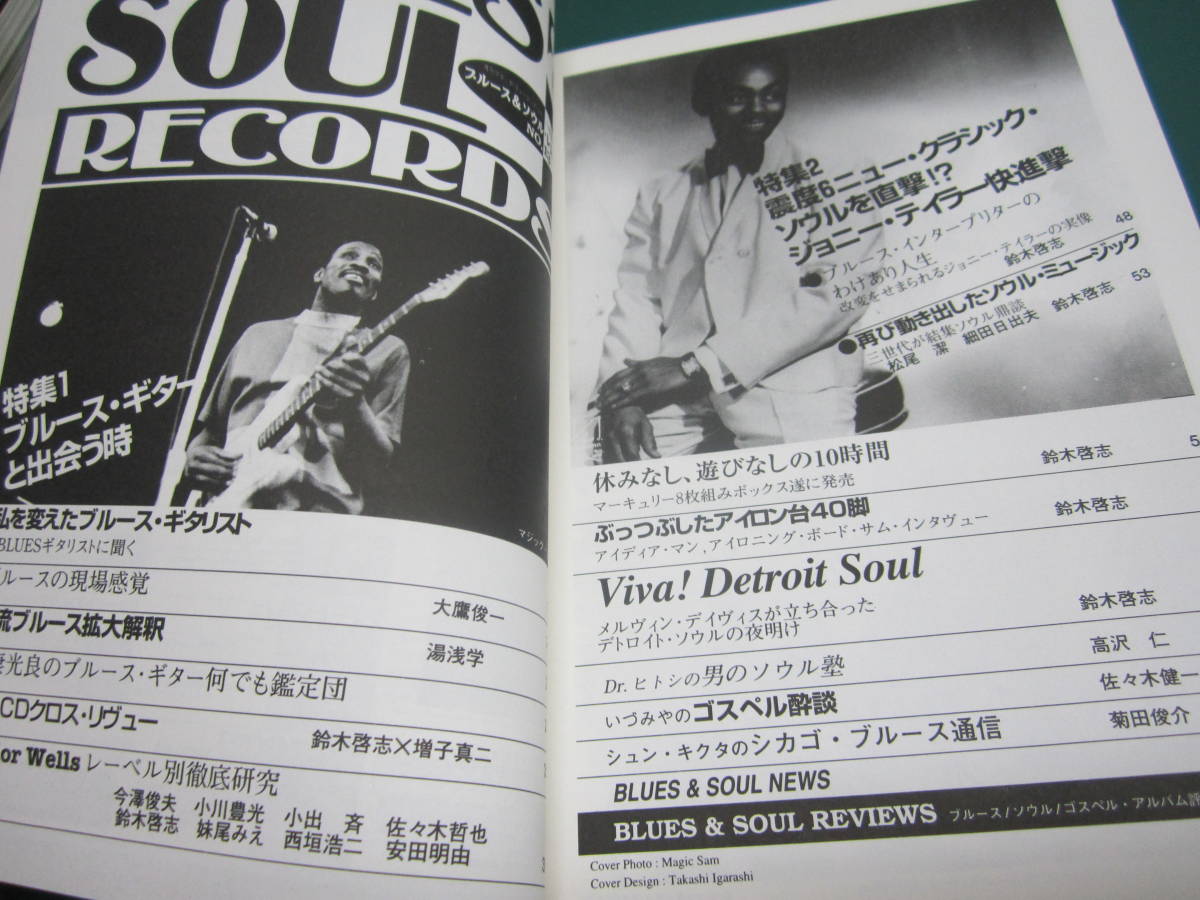 SOUL
ブルース&ソウル
NO.
RECORDS
特集1
ブルース・ギター
と出会う時
マジック
私を変えたブルース・ギタリスト
BLUESギタリストに聞く
ルースの現場感覚
大鷹俊一
流ブルース拡大解釈
湯浅学
光良のブルース・ギター何でも鑑定団
CDクロス・リヴュー
鈴木啓志×増子真二
or Wells レーベル別徹底研究
今澤俊夫 小川豊光 小出 斉 佐々木哲也
鈴木啓志 妹尾みえ 西垣浩二 安田明由
3
特集2
震度6ニュー・クラシック・
ソウルを直撃!?
ジョニー・テイラー快進撃
●ブルース・インタープリターの
わけあり人生 48
改変をせまられるジョニー・テイラーの実像
鈴木啓志
●再び動き出したソウル・ミュージック 53
三世代が結集ソウル鼎談
松尾 潔 細田日出夫 鈴木啓志
休みなし、遊びなしの10時間 5
マーキュリー8枚組みボックス遂に発売
鈴木啓志
ぶっつぶしたアイロン台40脚
アイディア・マン、アイロニング・ボード・サム・インタヴュー
鈴木啓志
Viva! Detroit Soul
メルヴィン・デイヴィスが立ち合った
デトロイト・ソウルの夜明け
鈴木啓志
Dr. ヒトシの男のソウル塾
高沢 仁
いづみやのゴスペル酔談
佐々木健一
シュン・キクタのシカゴ・ブルース通信
菊田俊介
BLUES & SOUL NEWS
BLUES & SOUL REVIEWS ブルース/ソウル/ゴスペル・アルバム評
Cover Photo : Magic Sam
Cover Design : Takashi Igarashi